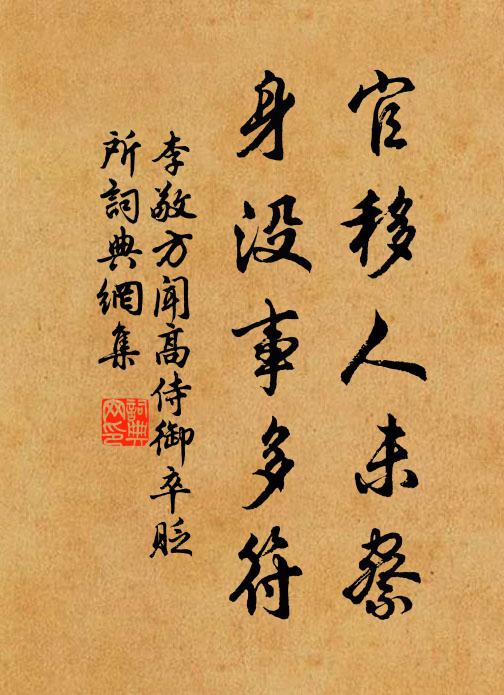 官移人未察
身没事多符
李敬方闻高侍御卒贬
所詞典網集
詞典
網印